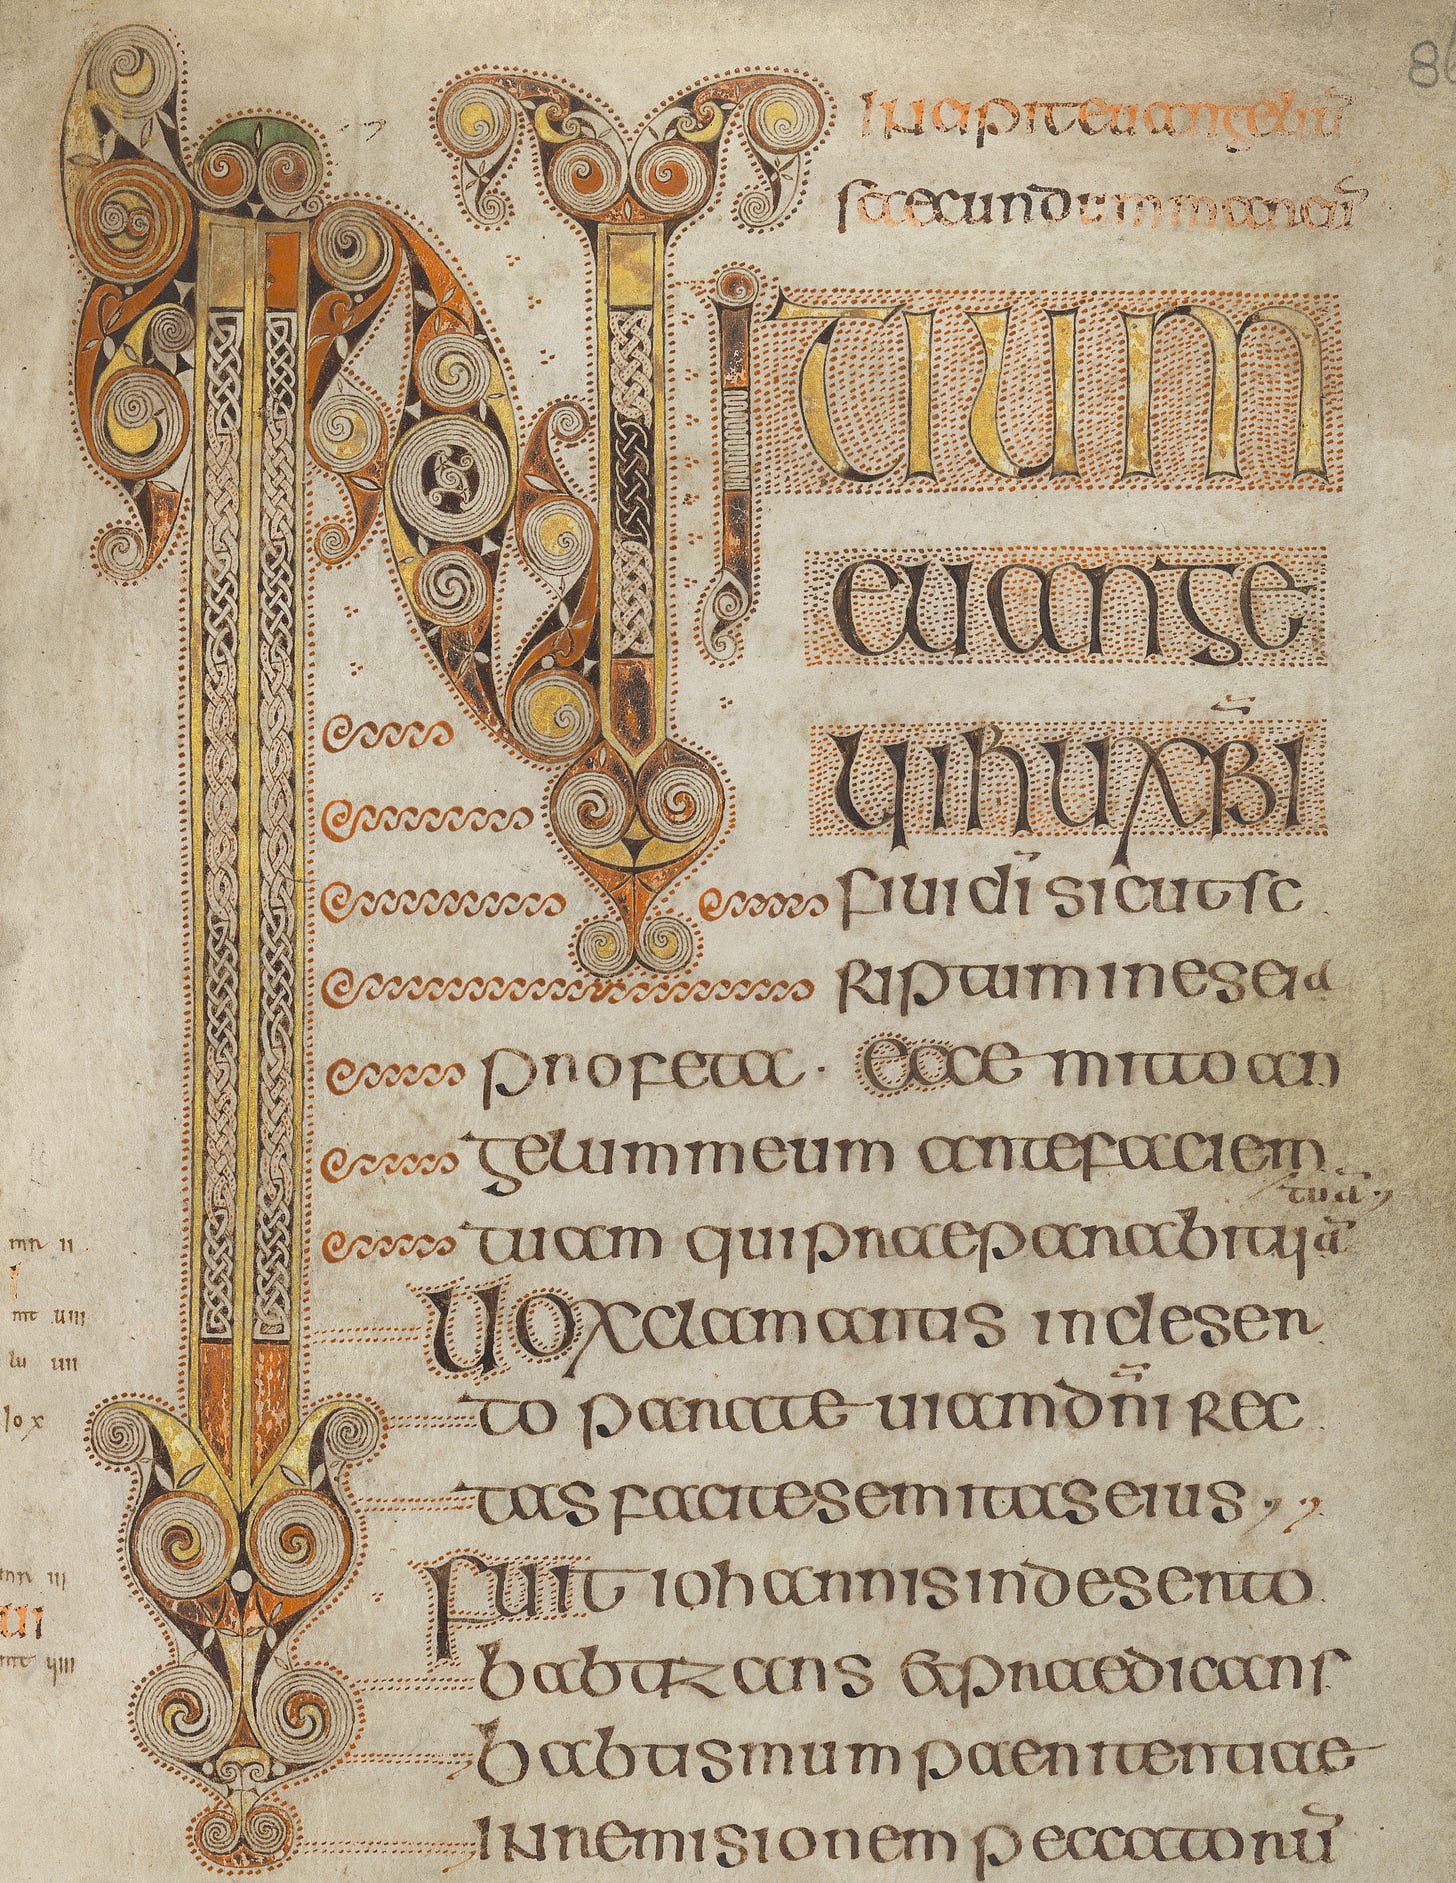 86
Incipit euangeliū
secundum marcū
INITIUM
euange
lii ihu xp̄i
filii di sicut sc
riptum in eseia
profeta · Ecce mitto an
gelum meum ante faciem
tuā
tuam qui praeparabit uiā
Uox clamantis in deser
to parate uiam dn̄i rec
tas facite semitas eius
fuit iohannis in deserto
babtizans & praedicans
babtismum paenitentiae
in remisionem peccatorū
mr ii
mt uiii
lu iiii
io x
mr iii